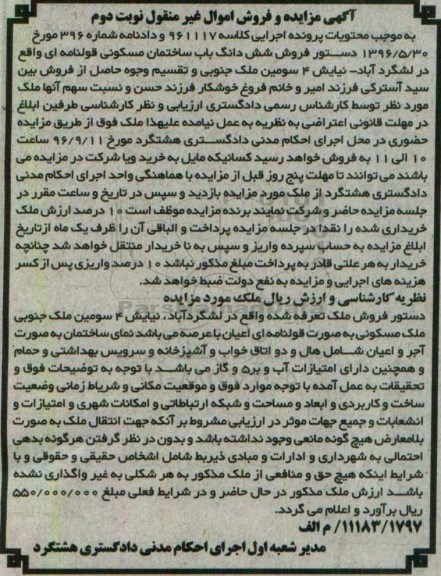 آگهی مزایده و فروش اموال غیر منقول نوبت دوم
به موجب محتویات پرونده اجرایی کلاسه ۹۶۱۱۱۷ و دادنامه شماره ۳۹۶ مورخ
۱۳۹۶/۵/۳۰ دستور فروش شش دانگ باب ساختمان مسکونی قولنامه ای واقع
در لشگرد آباد- نیایش ۴ سومین ملک جنوبی و تقسیم وجوه حاصل از فروش بین
سید آسترکی فرزند امیر و خانم فروغ خوشکار فرزند حسن و نسبت سهم آنها ملک
مورد نظر توسط کارشناس رسمی دادگستری ارزیابی و نظر کارشناسی طرفین ابلاغ
در مهلت قانونی اعتراضی به نظریه به عمل نیامده علیهذا ملک فوق از طریق مزایده
حضوری در محل اجرای احکام مدنی دادگستری هشتگرد مورخ ۹۶/۹/۱۱ ساعت
۱۰ الی ۱۱ به فروش خواهد رسید کسانیکه مایل به خرید ویا شرکت در مزایده می
باشند می توانند تا مهلت پنج روز قبل از مزایده با هماهنگی واحد اجرای احکام مدنی
دادگستری هشتگرد از ملک مورد مزایده بازدید و سپس در تاریخ و ساعت مقرر در
جلسه مزایده حاضر و شرکت نمایند برنده مزایده موظف است ۱۰ درصد ارزش ملک
خریداری شده را نقدا در جلسه مزایده پرداخت و الباقی آن را ظرف یک ماه از تاریخ
ابلاغ مزایده به حساب سپرده واریز و سپس به نا خریدار منتقل خواهد شد چنانچه
خریدار به هر علتی قادر به پرداخت مبلغ مذکور نباشد ۱۰ درصد واریزی پس از کسر
هزینه های اجرایی و مزایده به نفع دولت ضبط خواهد شد.
نظریه کارشناسی و ارزش ریال ملک مورد مزایده
دستور فروش ملک تعرفه شده واقع در لشگردآباد، نیایش ۴ سومین ملک جنوبی
ملک مسکونی به صورت قولنامه ای اعیان با عرصه می باشد نمای ساختمان به صورت
آجر و اعیان شامل هال و دو اتاق خواب و آشپزخانه و سرویس بهداشتی و حمام
و همچنین دارای امتیازات آب و برق و گاز می باشد با توجه به توضیحات فوق و
تحقیقات به عمل آمده با توجه موارد فوق و موقعیت مکانی و شرایط زمانی وضعیت
ساخت و کاربردی و ابعاد و مساحت و شبکه ارتباطاتی و امکانات شهری و امتیازات و
انشعابات و جمیع جهات موثر در ارزیابی مشروط بر آنکه جهت انتقال ملک به صورت
بلامعارض هیچ گونه مانعی وجود نداشته باشد و بدون در نظر گرفتن هرگونه بدهی
احتمالی به شهرداری و ادارات و مبادی ذیربط شامل اشخاص حقیقی و حقوقی و با
شرایط اینکه هیچ حق و منافعی از ملک مذکور به هر شکلی به غیر واگذاری نشده
باشد ارزش ملک مذکور در حال حاضر و در شرایط فعلی مبلغ ۵۵۰/۰۰۰/۰۰۰
ریال برآورد و اعلام می گردد.
۱۱۱۸۳/۱۷۹۷/ م الف
مدیر شعبه اول اجرای احکام مدنی دادگستری هشتگرد